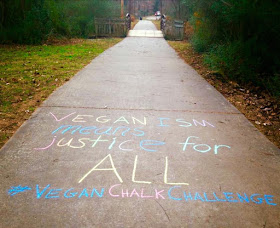 VEGANISM
means
justice for
ALL
#VEGANCHALKCHALLENGE